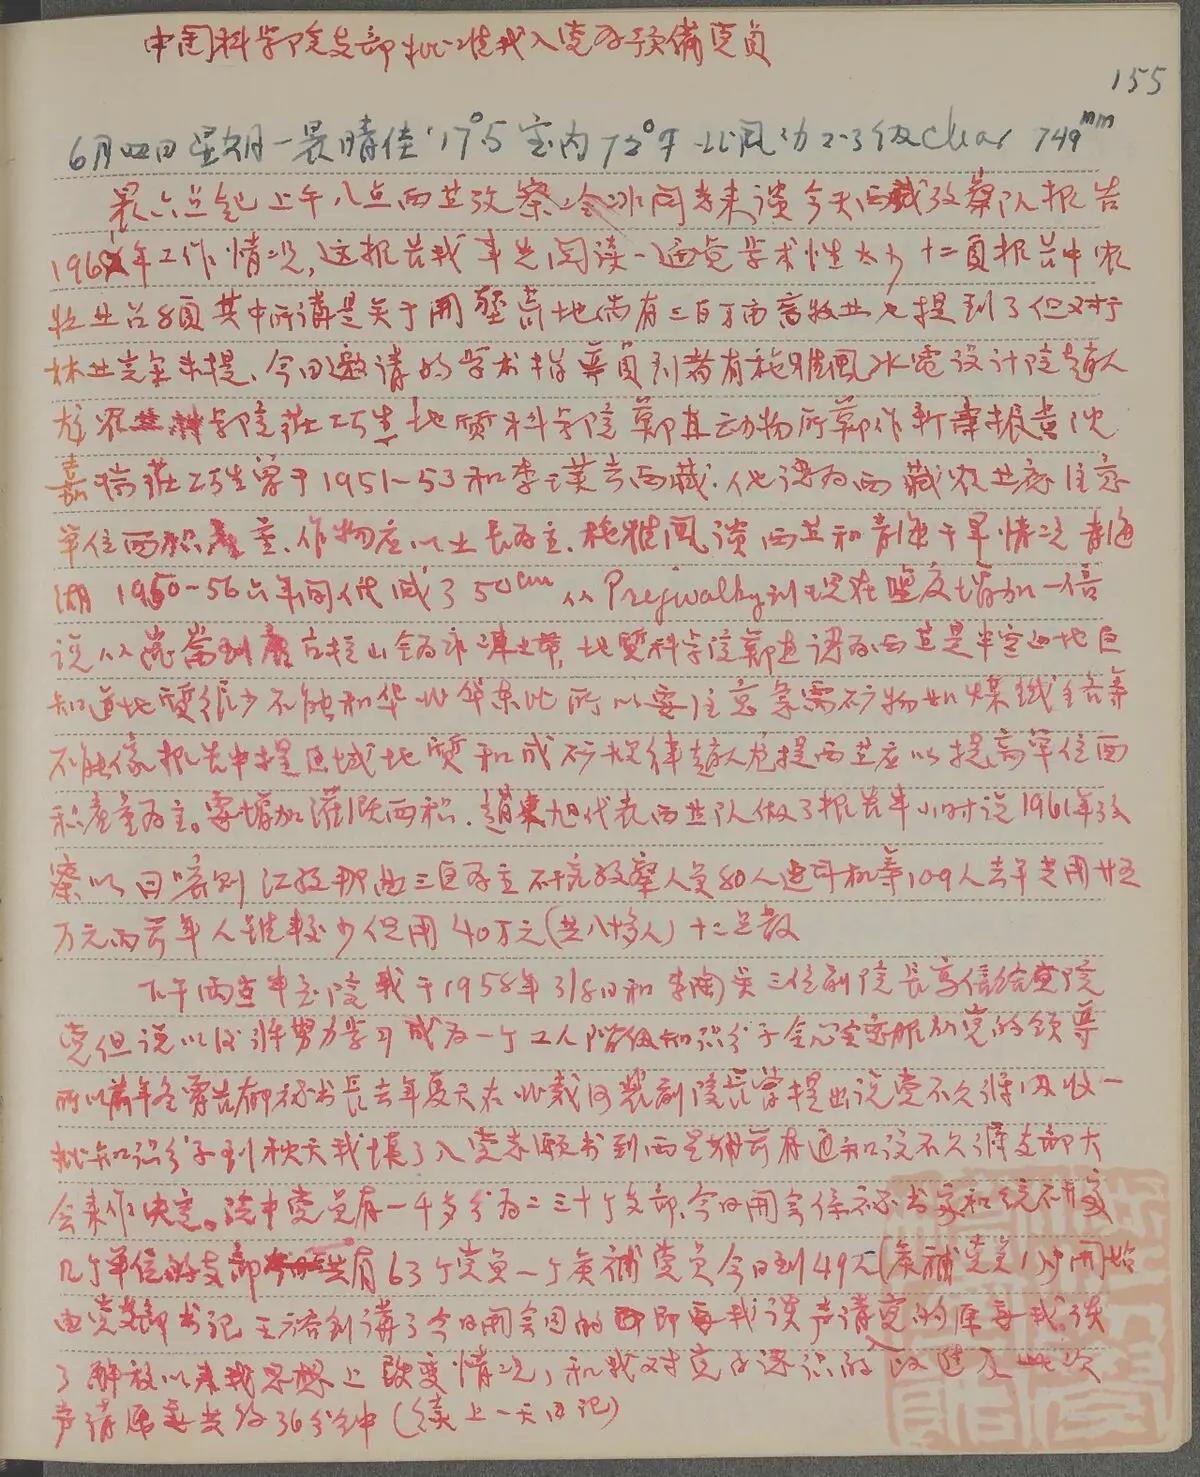 中国科学院支部批准我入党为预备党员
155
6月四日星期一晨晴佳 17°5 室内72°F 北风力2-3级 clear 749mm
晨六点起 上午八点西北考察 会 冰 同志来谈 今天西藏考察队报告
196 年工作情况,这报告我事先阅读一遍觉学术性太少 十二頁报告中农
牧业占8頁 其中所講是关于開墾荒地尚有三百万亩 畜牧业也提到了 但对于
林业完全未提、今日邀请的学术指导員到者有施雅風 水电设计院赵人
龙 农 科学院莊巧生 地質科学院鄭直 动物所鄭作新 報告 沈
嘉瑞 莊巧生曾于1951~53和李 去西藏. 他認为西藏农业应注意
单位面积產量、作物应以 为主. 施雅風談西北和青海干旱情况 青海
湖 1950-56六年间低减了50cm 从Prejwalky到现在 度增加一倍
说从崑崙到 古拉山全为永冻土带, 地質科学院鄭直認为西藏是半空白地区
知道地質很少不能和华北华东比 所以要注意急需矿物如煤鉄 等
不能像报告中提区域地質和成矿規律 赵人龙提西藏应以提高单位面
积產量为主。要增加灌溉面积. 趙東旭代表西藏队做了报告半小时 说1961年考
察以日喀则 江孜 那曲三区为主 研究考察人員80人連司机等109人 去年共用廿五
万元 前年人雖較少但用40万元(共八十多人) 十二点散
下午两点半至院 我于1958年3/8日和李陶吴三位副院長寫信給党院
党 但说以后将努力学习成为一个工人階級知识分子 全心全意服从党的領导
所以前年冬 郁秘书長去年夏天在北戴河裴副院長曾提出说党不久将吸收一
批知识分子 到秋天我填了入党志願书 到两星期前 通知说不久将支部大
会来作决定。院中党員有一千多分为二三十个支部. 今日開会係秘书 家和
几个单位的支部 共有63个党員一个候補党員 今日到49人(候補党員1)开始
由党支部书记 講了今日開会目的即要我谈声请入党的原 我谈
了解放以来我思想上改变情况,和我对党的認识的改进及此次
声请原 共约36分钟(续上一天日记)